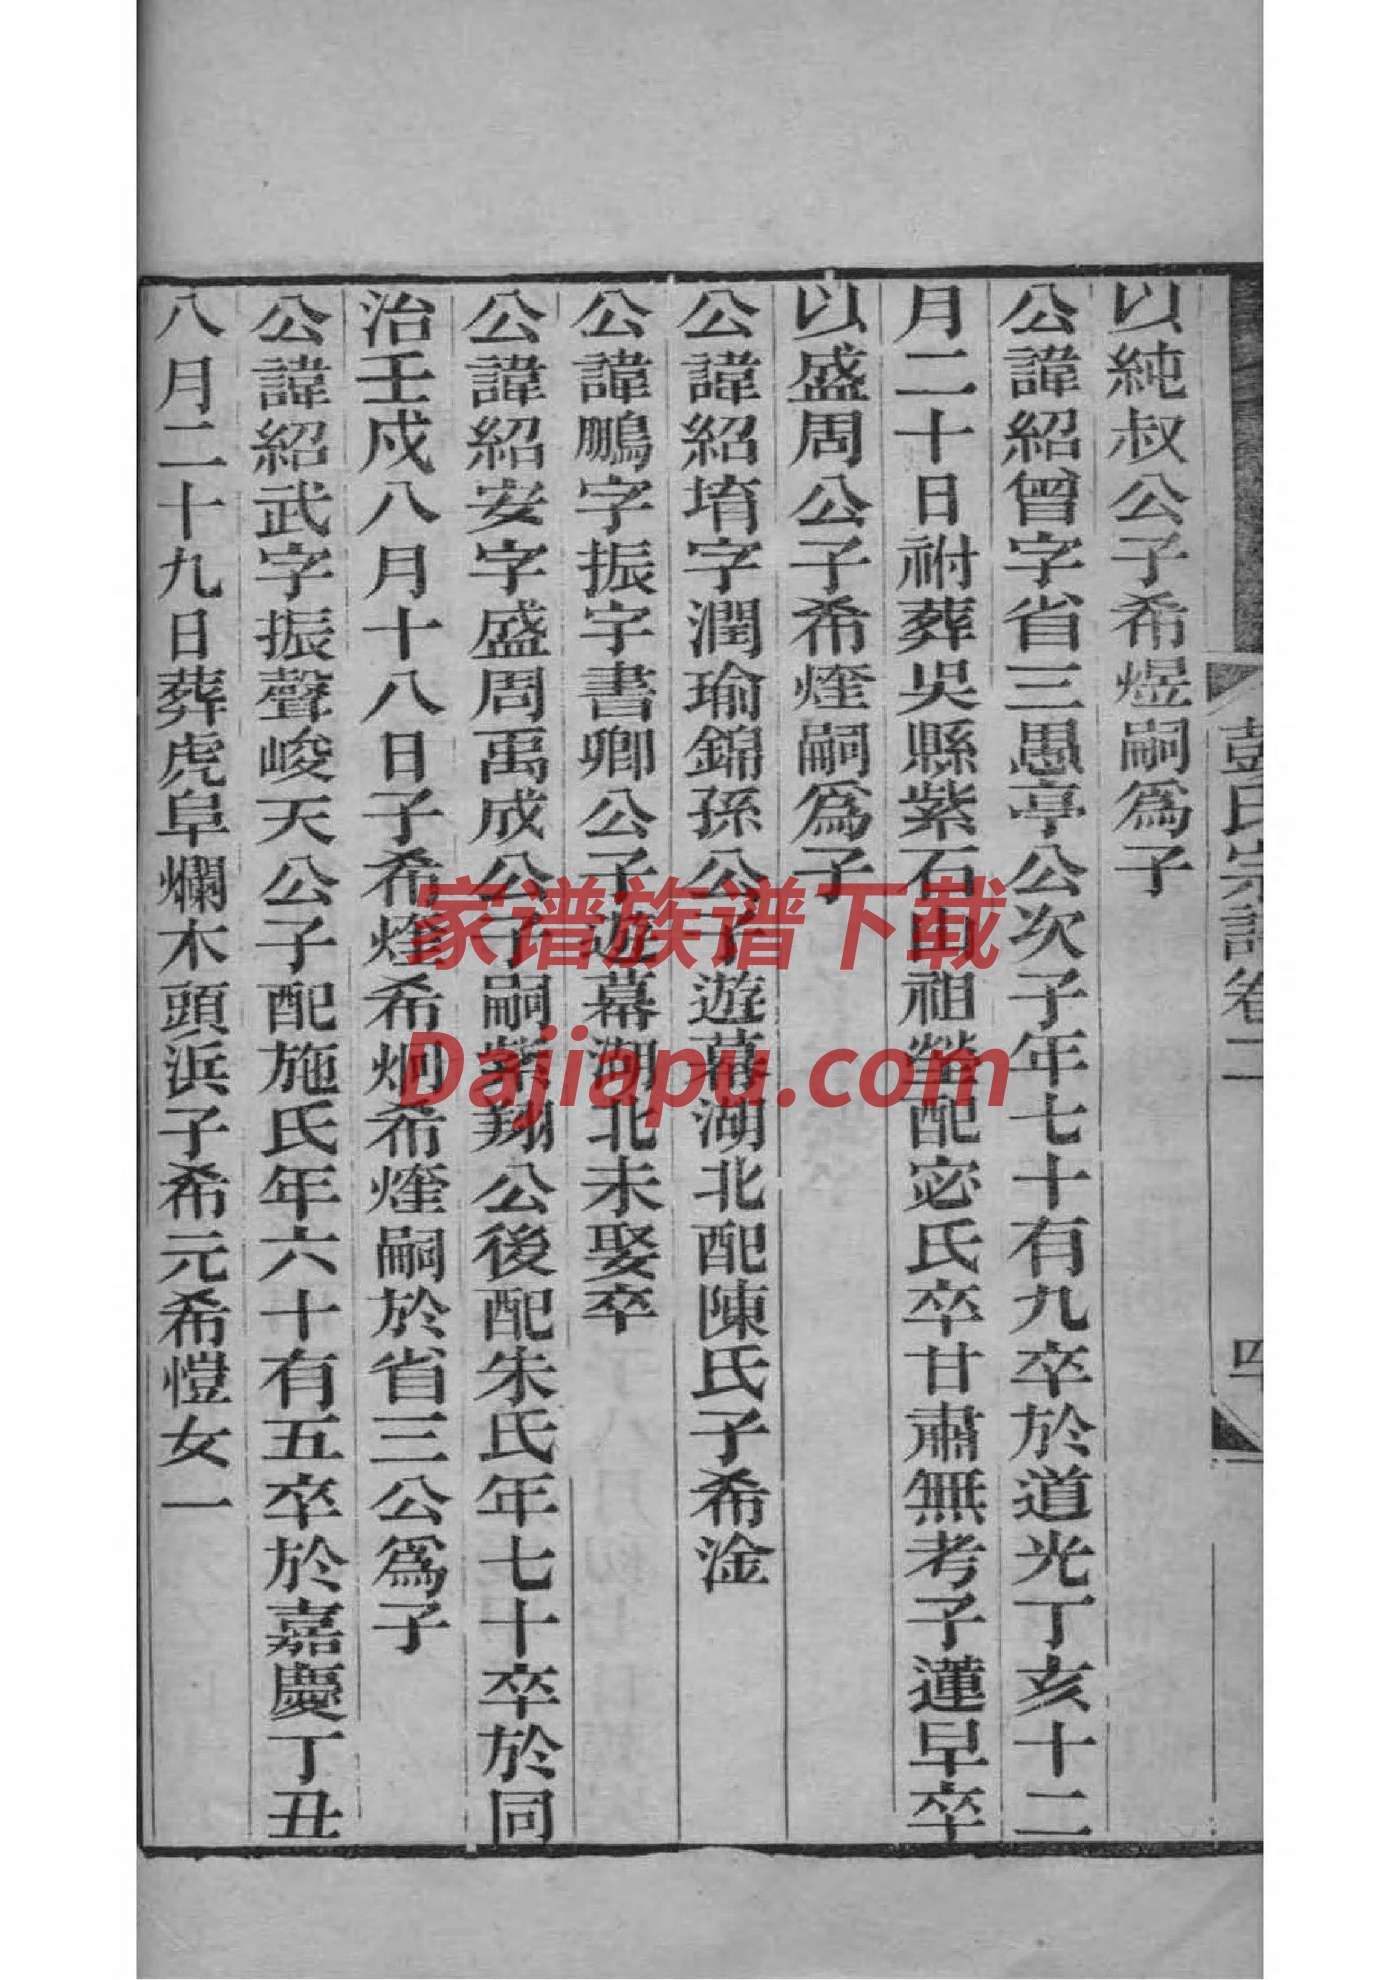 彭氏宗譜卷二
四
以純叔公子希煜嗣爲子
公諱紹曾字省三愚亭公次子年七十有九卒於道光丁亥十二
月二十日祔葬吳縣紫石山祖塋配宓氏卒甘肅無考子蓮早卒
以盛周公子希煃嗣爲子
公諱紹堉字潤瑜錦孫公子遊幕湖北配陳氏子希淦
公諱鵬字振字書卿公子遊幕湖北未娶卒
公諱紹安字盛周禹成公子嗣紫翔公後配朱氏年七十卒於同
治壬戍八月十八日子希煃希炯希煃嗣於省三公爲子
公諱紹武字振聲峻天公子配施氏年六十有五卒於嘉慶丁丑
八月二十九日葬虎阜爛木頭浜子希元希愷女一
家谱族谱下载
Dajiapu.com